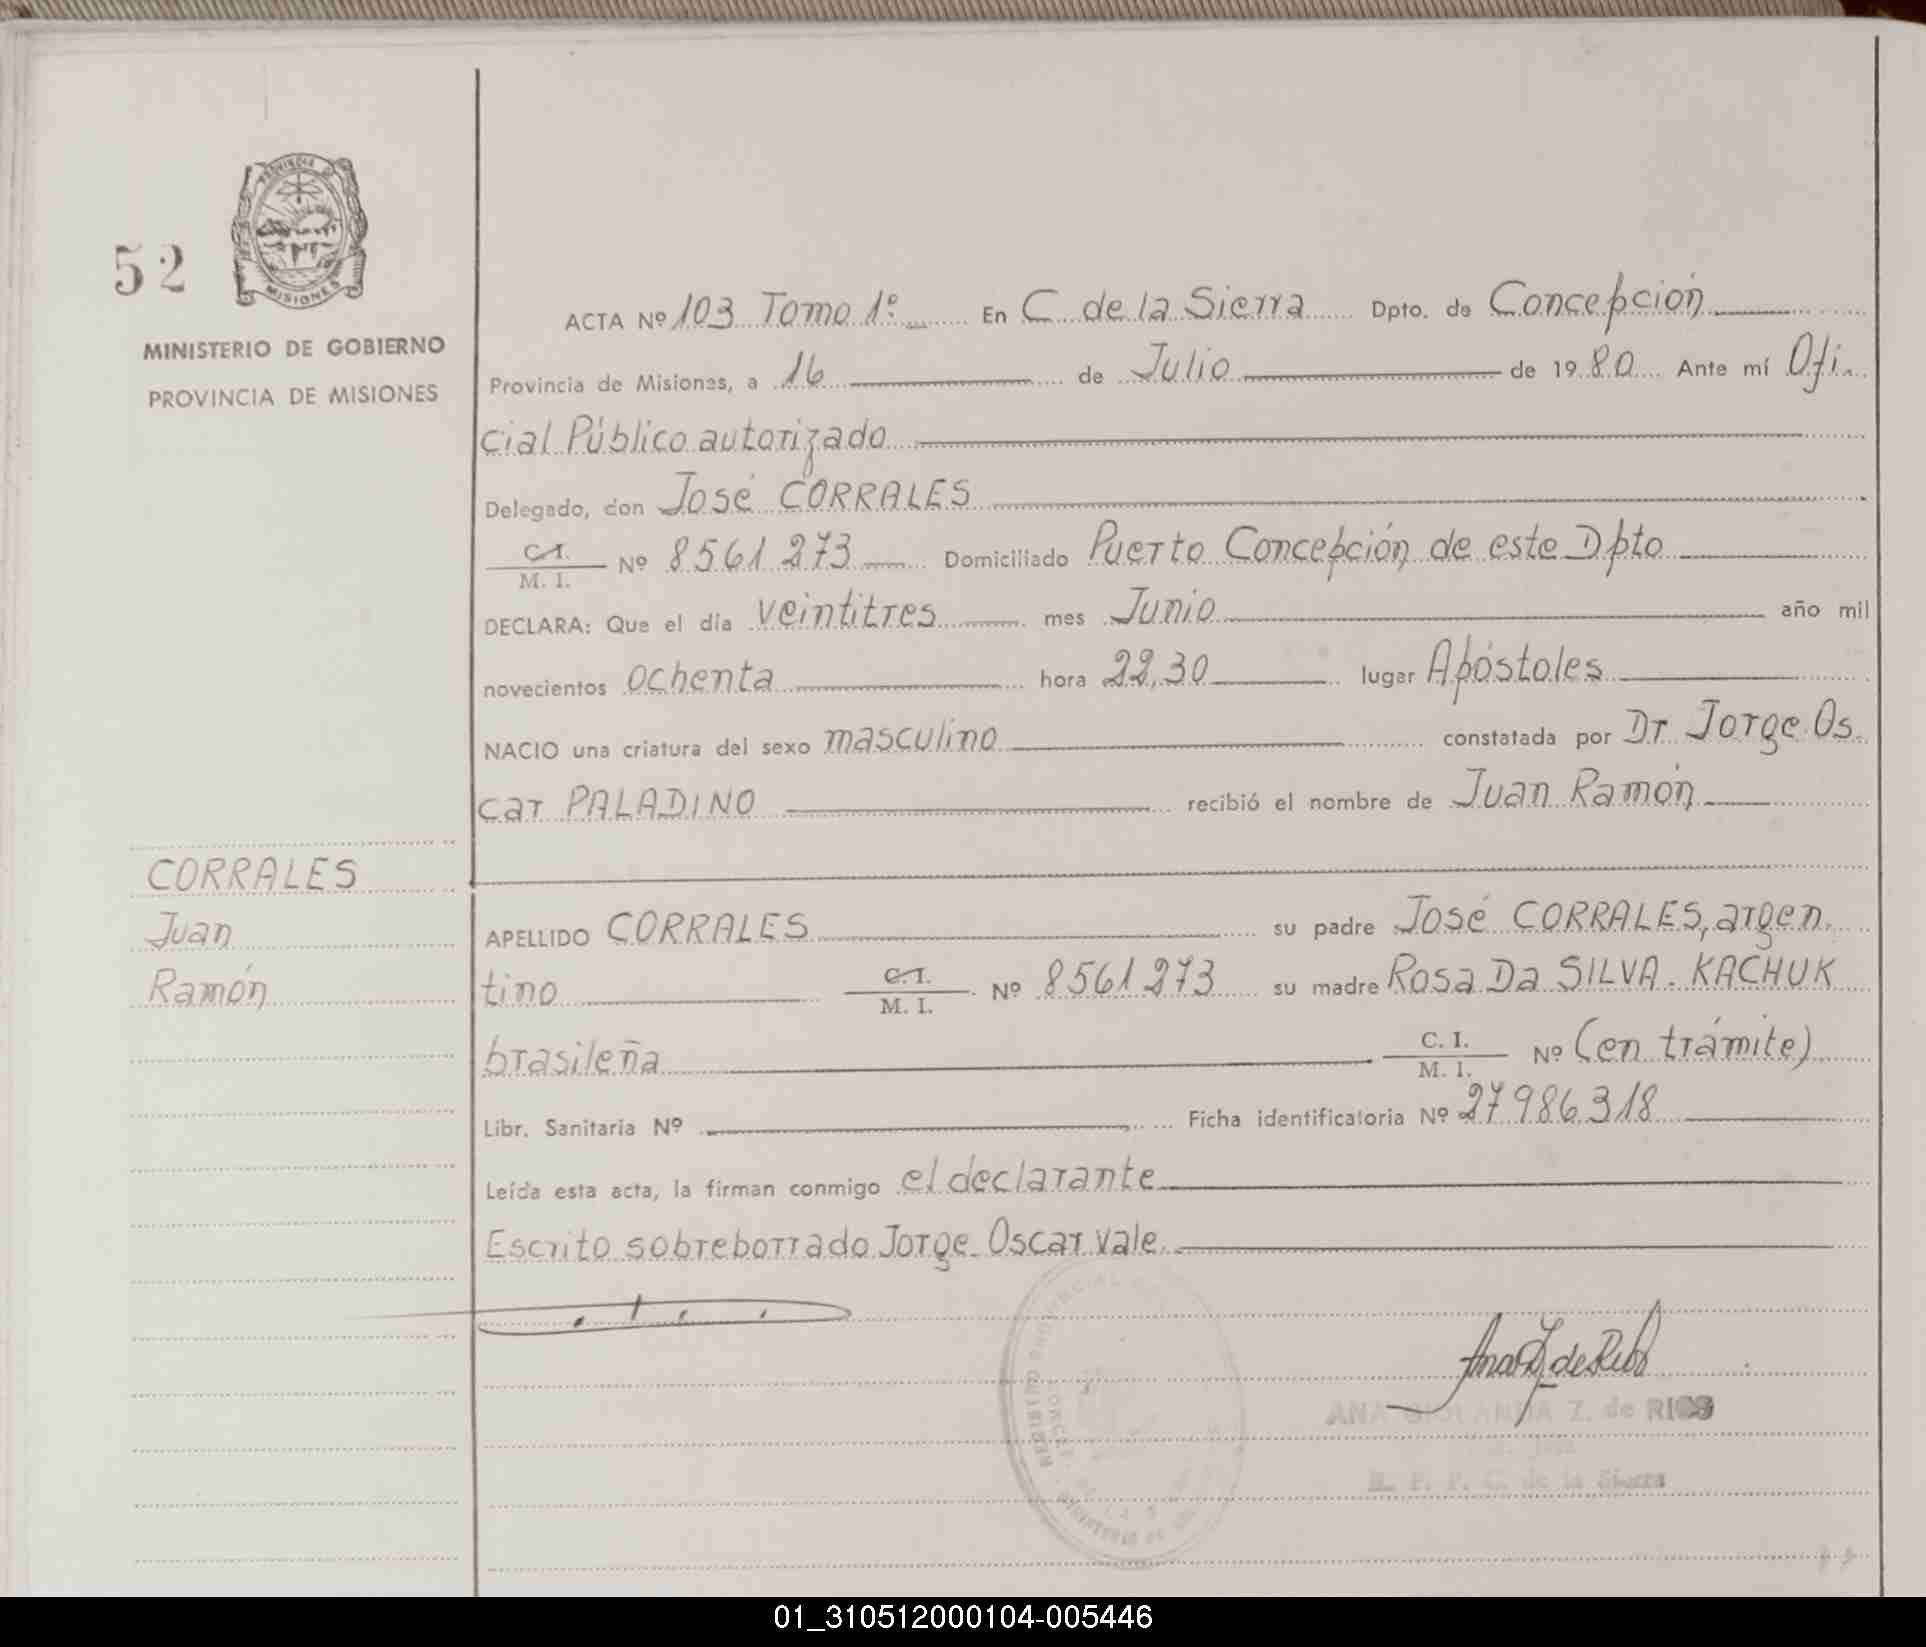 52
PROVINCIA DE
MISIONES
MINISTERIO DE GOBIERNO
PROVINCIA DE MISIONES
ACTA Nº 103 Tomo 1º En C. de la Sierra Dpto. de Concepción
Provincia de Misiones, a 16 de Julio de 1980 Ante mí Ofi-
cial Público autorizado
Delegado, don José CORRALES
C.I. / M. I. Nº 8561273 Domiciliado Puerto Concepción de este Dpto
DECLARA: Que el día veintitres mes Junio año mil
novecientos ochenta hora 22,30 lugar Apóstoles
NACIO una criatura del sexo masculino constatada por Dr Jorge Os
car PALADINO recibió el nombre de Juan Ramón
CORRALES
Juan
Ramón
APELLIDO CORRALES su padre José CORRALES, argen
tino C.I. / M. I. Nº 8561273 su madre Rosa Da SILVA. KACHUK
brasileña C. I. / M. I. Nº (en trámite)
Libr. Sanitaria Nº Ficha identificatoria Nº 27986318
Leída esta acta, la firman conmigo el declarante
Escrito sobreborrado Jorge Oscar vale.
REGISTRO PROVINCIAL
MINISTERIO DE
ANA Z. de RIOS
R. P. P. C. de la Sierra
01_310512000104-005446